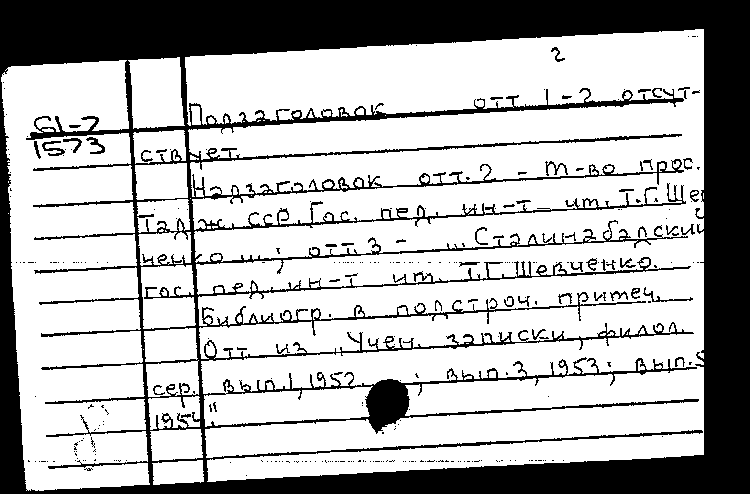 2
61-7
1573
Подзаголовок отт 1-2 отсут-
ствует.
Надзаголовок отт. 2 - М-во прос.
Тадж. ССР. Гос. пед. ин-т им. Т.Г. Шев
ченко ...; отт. 3 - ... Сталинабадский
гос. пед. ин-т им. Т.Г. Шевченко.
Библиогр. в подстроч. примеч.
Отт. из „Учен. записки, филол.
сер. вып. 1, 1952 ; вып. 3, 1953; вып. 5
1954."